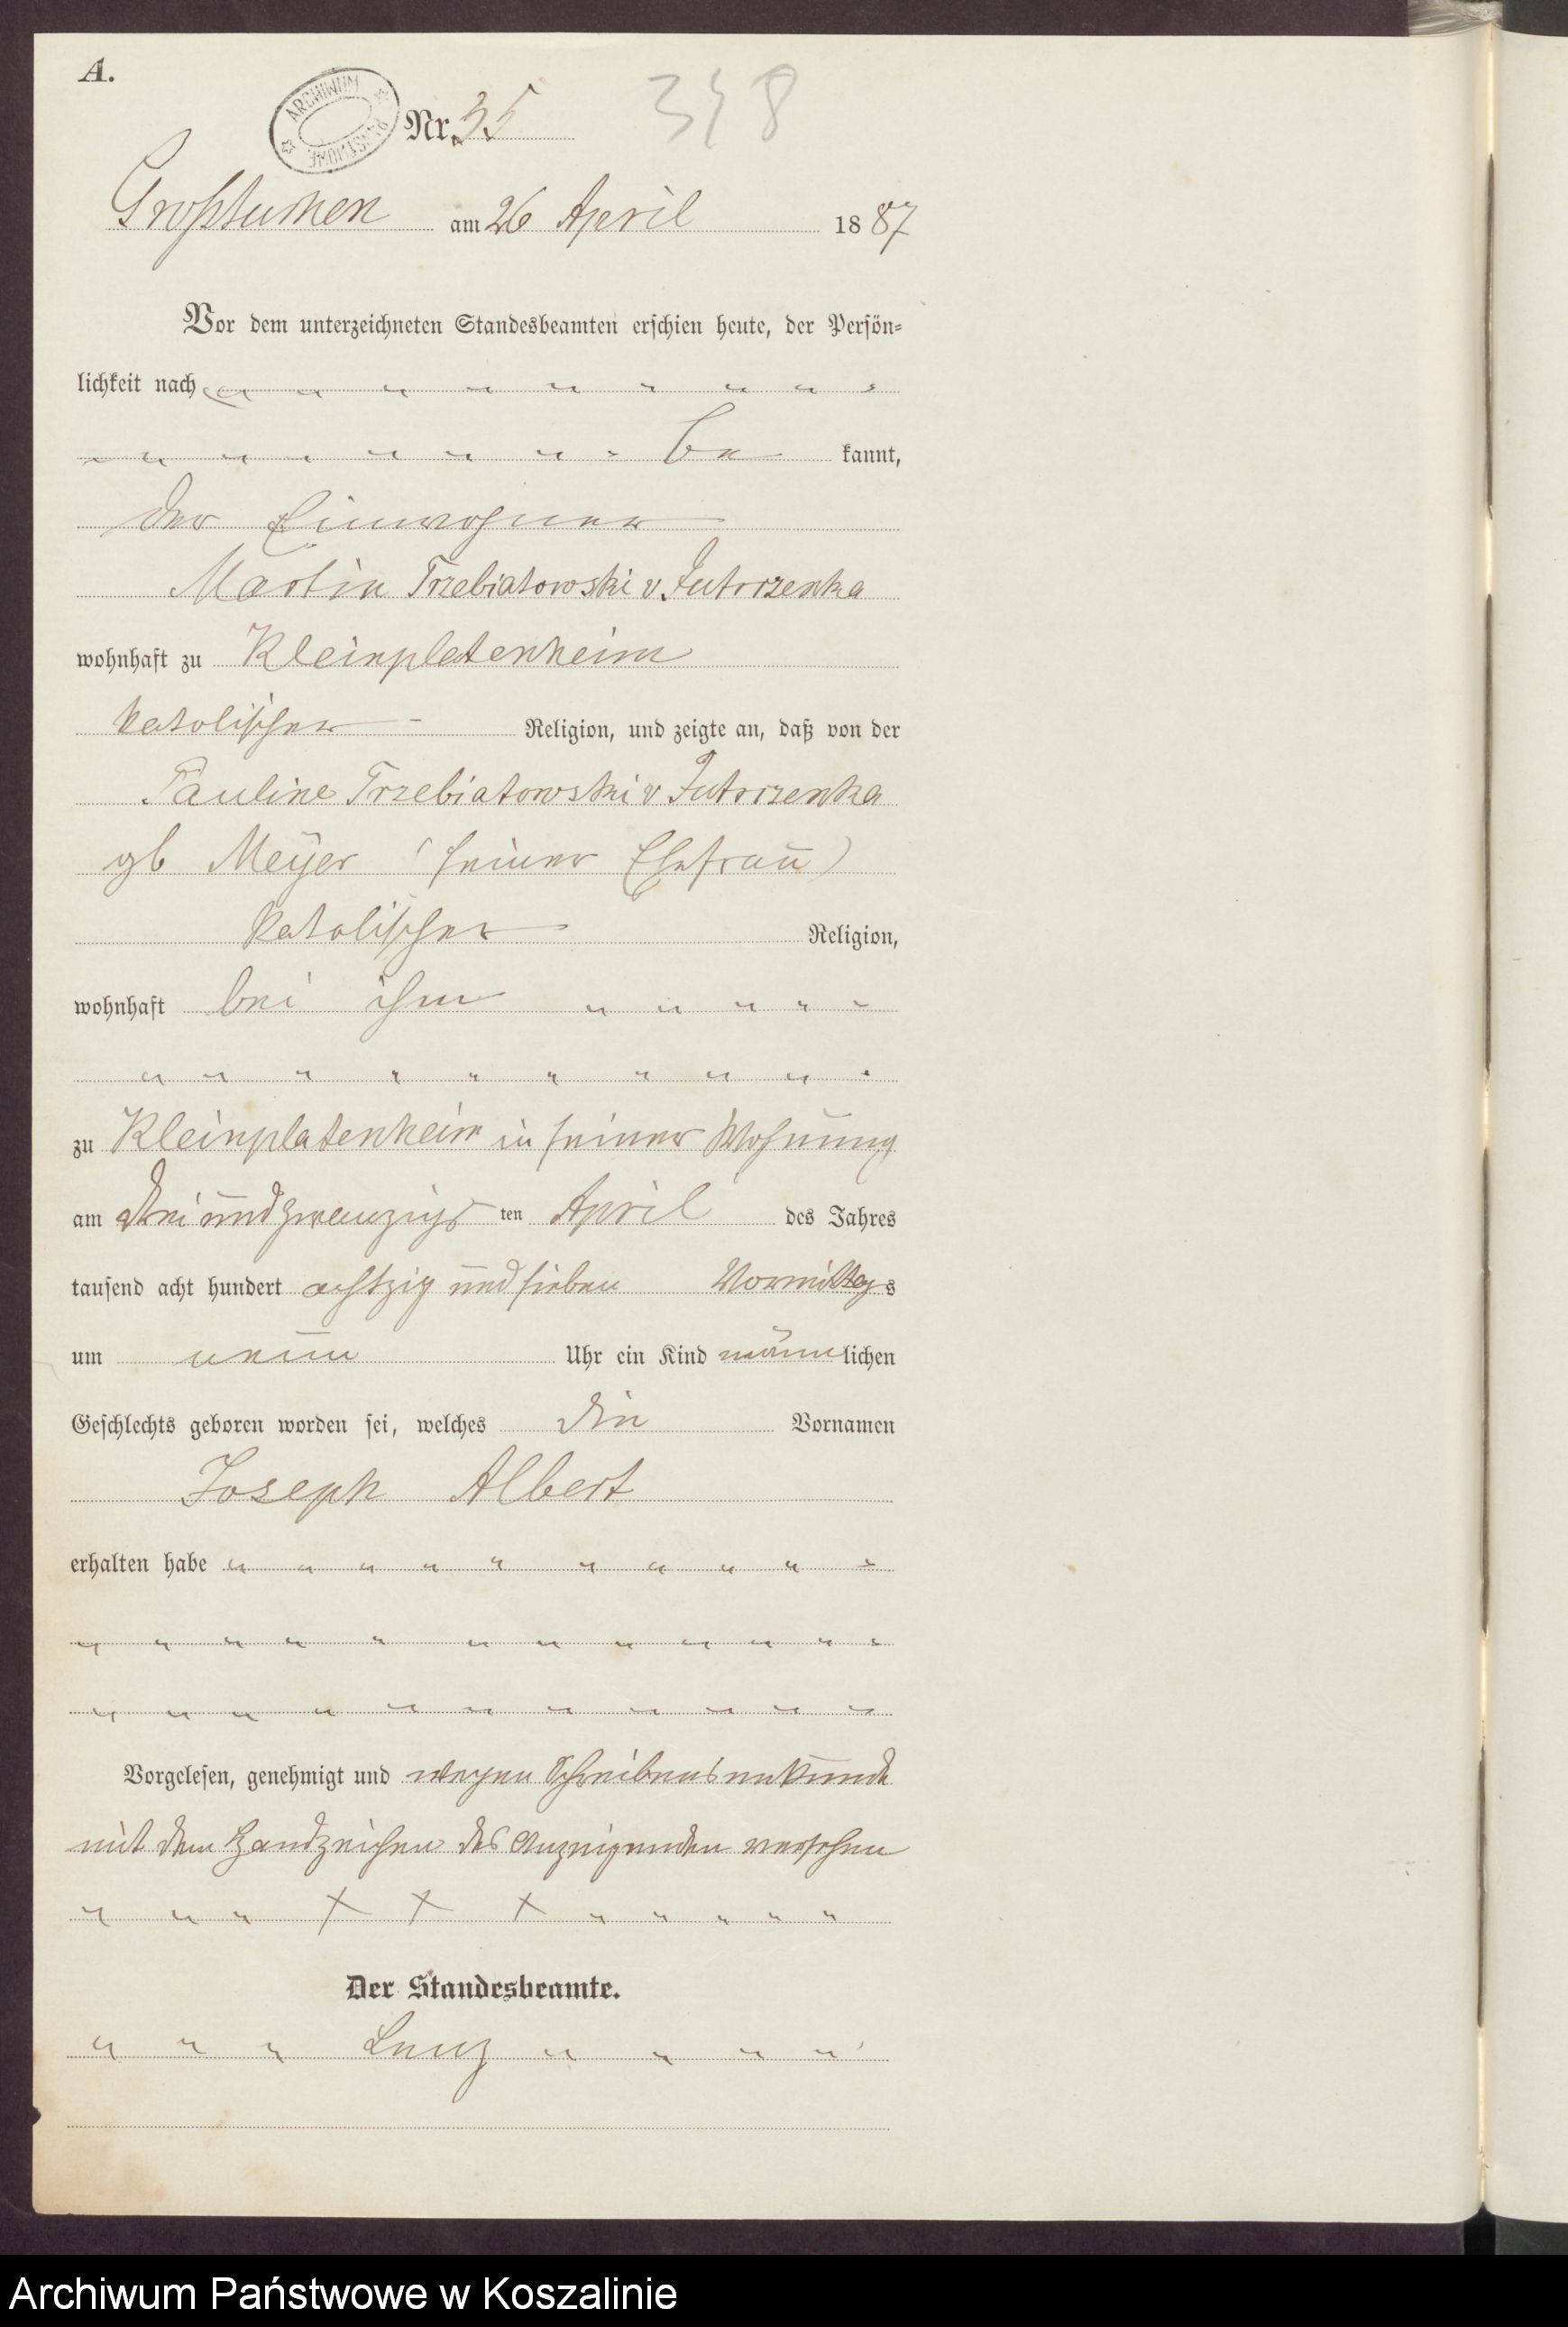 A.
ARCHIWUM PAŃSTWOWE
Nr. 35
Großtuchen am 26 April 1887
Vor dem unterzeichneten Standesbeamten erschien heute, der Persön-
lichkeit nach
be kannt,
der Einwohner
Martin Trzebiatowski v. Jutrzenka
wohnhaft zu Kleinplatenheim
katolischer Religion, und zeigte an, daß von der
Pauline Trzebiatowski v Jutrzenka
gb Meÿer (seiner Ehefrau)
katolischer Religion,
wohnhaft bei ihm
zu Kleinplatenheim in seiner Wohnung
am dreiundzwanzigs ten April des Jahres
tausend acht hundert achtzig und sieben Vormittags
um neun Uhr ein Kind männlichen
Geschlechts geboren worden sei, welches die Vornamen
Joseph Albert
erhalten habe
Vorgelesen, genehmigt und wegen Schreibensunkunde
mit dem Handzeichen des Anzeigenden versehen
+ + +
Der Standesbeamte.
Lenz
Archiwum Państwowe w Koszalinie